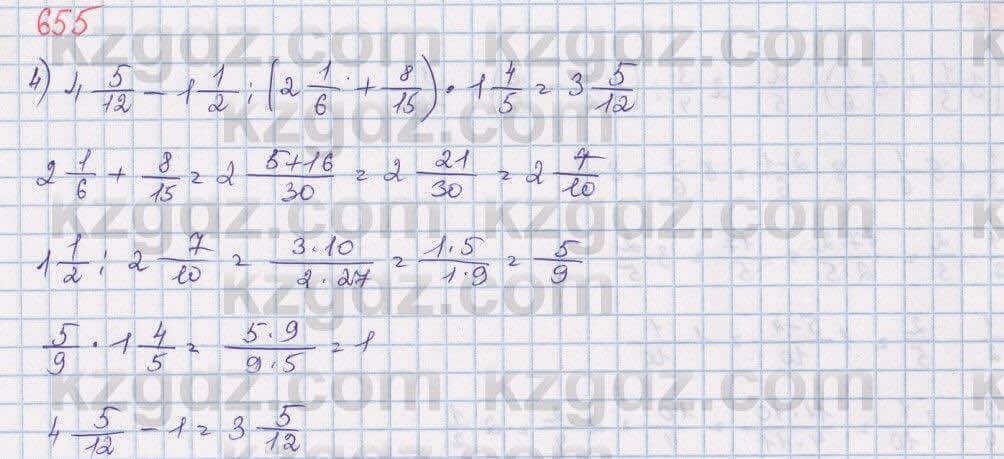 655
4) 4 5/12 - 1 1/2 : (2 1/6 + 8/15) · 1 4/5 = 3 5/12
2 1/6 + 8/15 = 2 5+16/30 = 2 21/30 = 2 7/10
1 1/2 : 2 7/10 = 3·10/2·27 = 1·5/1·9 = 5/9
5/9 · 1 4/5 = 5·9/9·5 = 1
4 5/12 - 1 = 3 5/12
kzgdz.com kzgdz.com
kzgdz.com
kzgdz.com kzgdz.com
kzgdz.com
kzgdz.com kzgdz.com